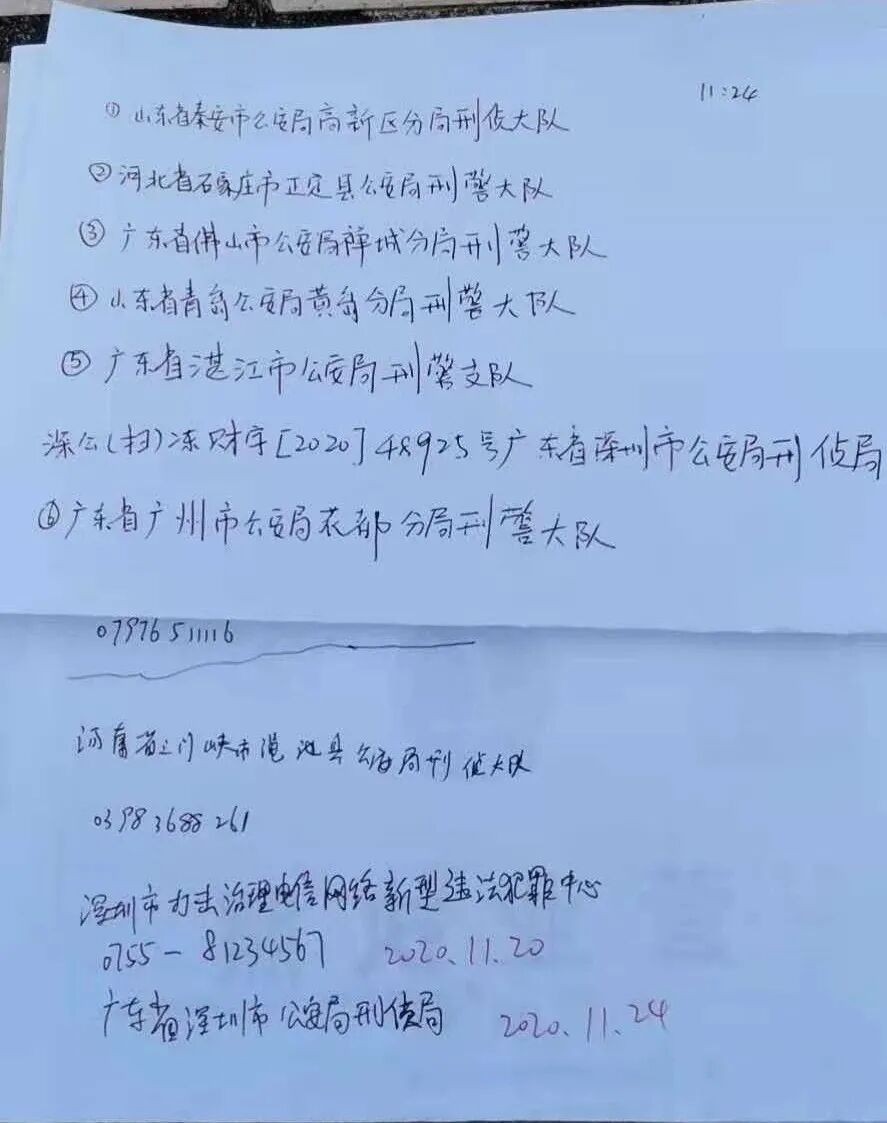 11:24
① 山东省泰安市公安局高新区分局刑侦大队
② 河北省石家庄市正定县公安局刑警大队
③ 广东省佛山市公安局禅城分局刑警大队
④ 山东省青岛公安局黄岛分局刑警大队
⑤ 广东省湛江市公安局刑警支队
深公(扫)冻财字[2020]48925号广东省深圳市公安局刑侦局
⑥ 广东省广州市公安局花都分局刑警大队
07976511116
河南省三门峡市渑池县公安局刑侦大队
03983688261
深圳市打击治理电信网络新型违法犯罪中心
0755-81234567 2020.11.20
广东省深圳市公安局刑侦局 2020.11.24